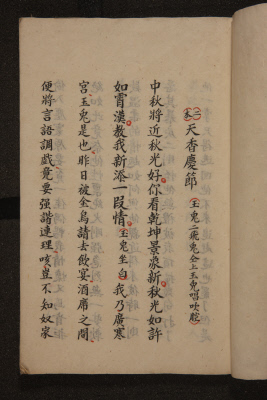 天香慶節
玉兔二鹿兔仝上玉兔唱吹腔
中秋將近秋光好你看乾坤景象新秋光如許
如霄漢教我新添一段情玉兔坐白我乃廣寒
宮玉兔是也昨日被金烏請去飲宴酒席之間
便將言語調戲竟要强諧連理咳豈不知奴家